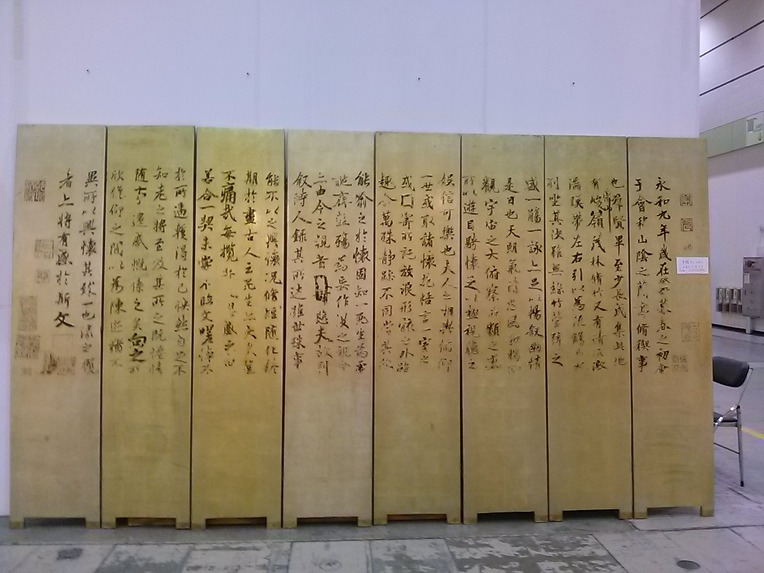 永和九年歲在癸丑暮春之初會
于會稽山陰之蘭亭脩禊事
也羣賢畢至少長咸集此地
有峻領茂林脩竹又有清流激
湍映帶左右引以為流觴曲水
列坐其次雖無絲竹管弦之
盛一觴一詠亦足以暢敘幽情
是日也天朗氣清惠風和暢仰
觀宇宙之大俯察品類之盛
所以遊目騁懷足以極視聽之
娛信可樂也夫人之相與俯仰
一世或取諸懷抱悟言一室之
內或因寄所託放浪形骸之外雖
趣舍萬殊靜躁不同當其欣
能喻之於懷固知一死生為虛
誕齊彭殤為妄作後之視今
亦由今之視昔悲夫故列
敘時人錄其所述雖世殊事
能不以之興懷況脩短隨化終
期於盡古人云死生亦大矣豈
不痛哉每攬昔人興感之由
若合一契未嘗不臨文嗟悼不
於所遇蹔得於己快然自足不
知老之將至及其所之既惓情
隨事遷感慨係之矣向之所
欣俛仰之閒以為陳迹猶不
異所以興懷其致一也後之攬
者亦將有感於斯文